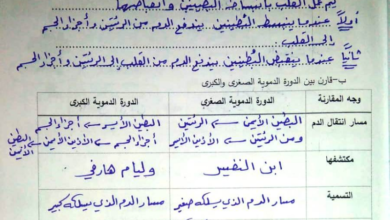 يتم عمل القلب بانبساط البطينين وانقباضها
أولاً: عندما ينبسط البُطينين.. يندفع الدم من الرئتين وأجزاء الجسم
إلى القلب
ثانياً: عندما ينقبض البُطينين.. يندفع الدم من القلب إلى الرئتين وأجزاء الجسم
ب-قارن بين الدورة الدموية الصغرى والكبرى
وجه المقارنة الدورة الدموية الصغري الدورة الدموية الكبرى
مسار انتقال الدم البطين الأيمن الرئتين البطين الأيسر أجزاء الجسم
ومن الرئتين الأذين الأيسر أجزاء الجسم الأذين الأيمن البطين الأيمن
مكتشفها ابن النفيس وليام هارفي
التسمية مسار الدم الذي يسلكه صغير مسار الدم الذي يسلكه كبير